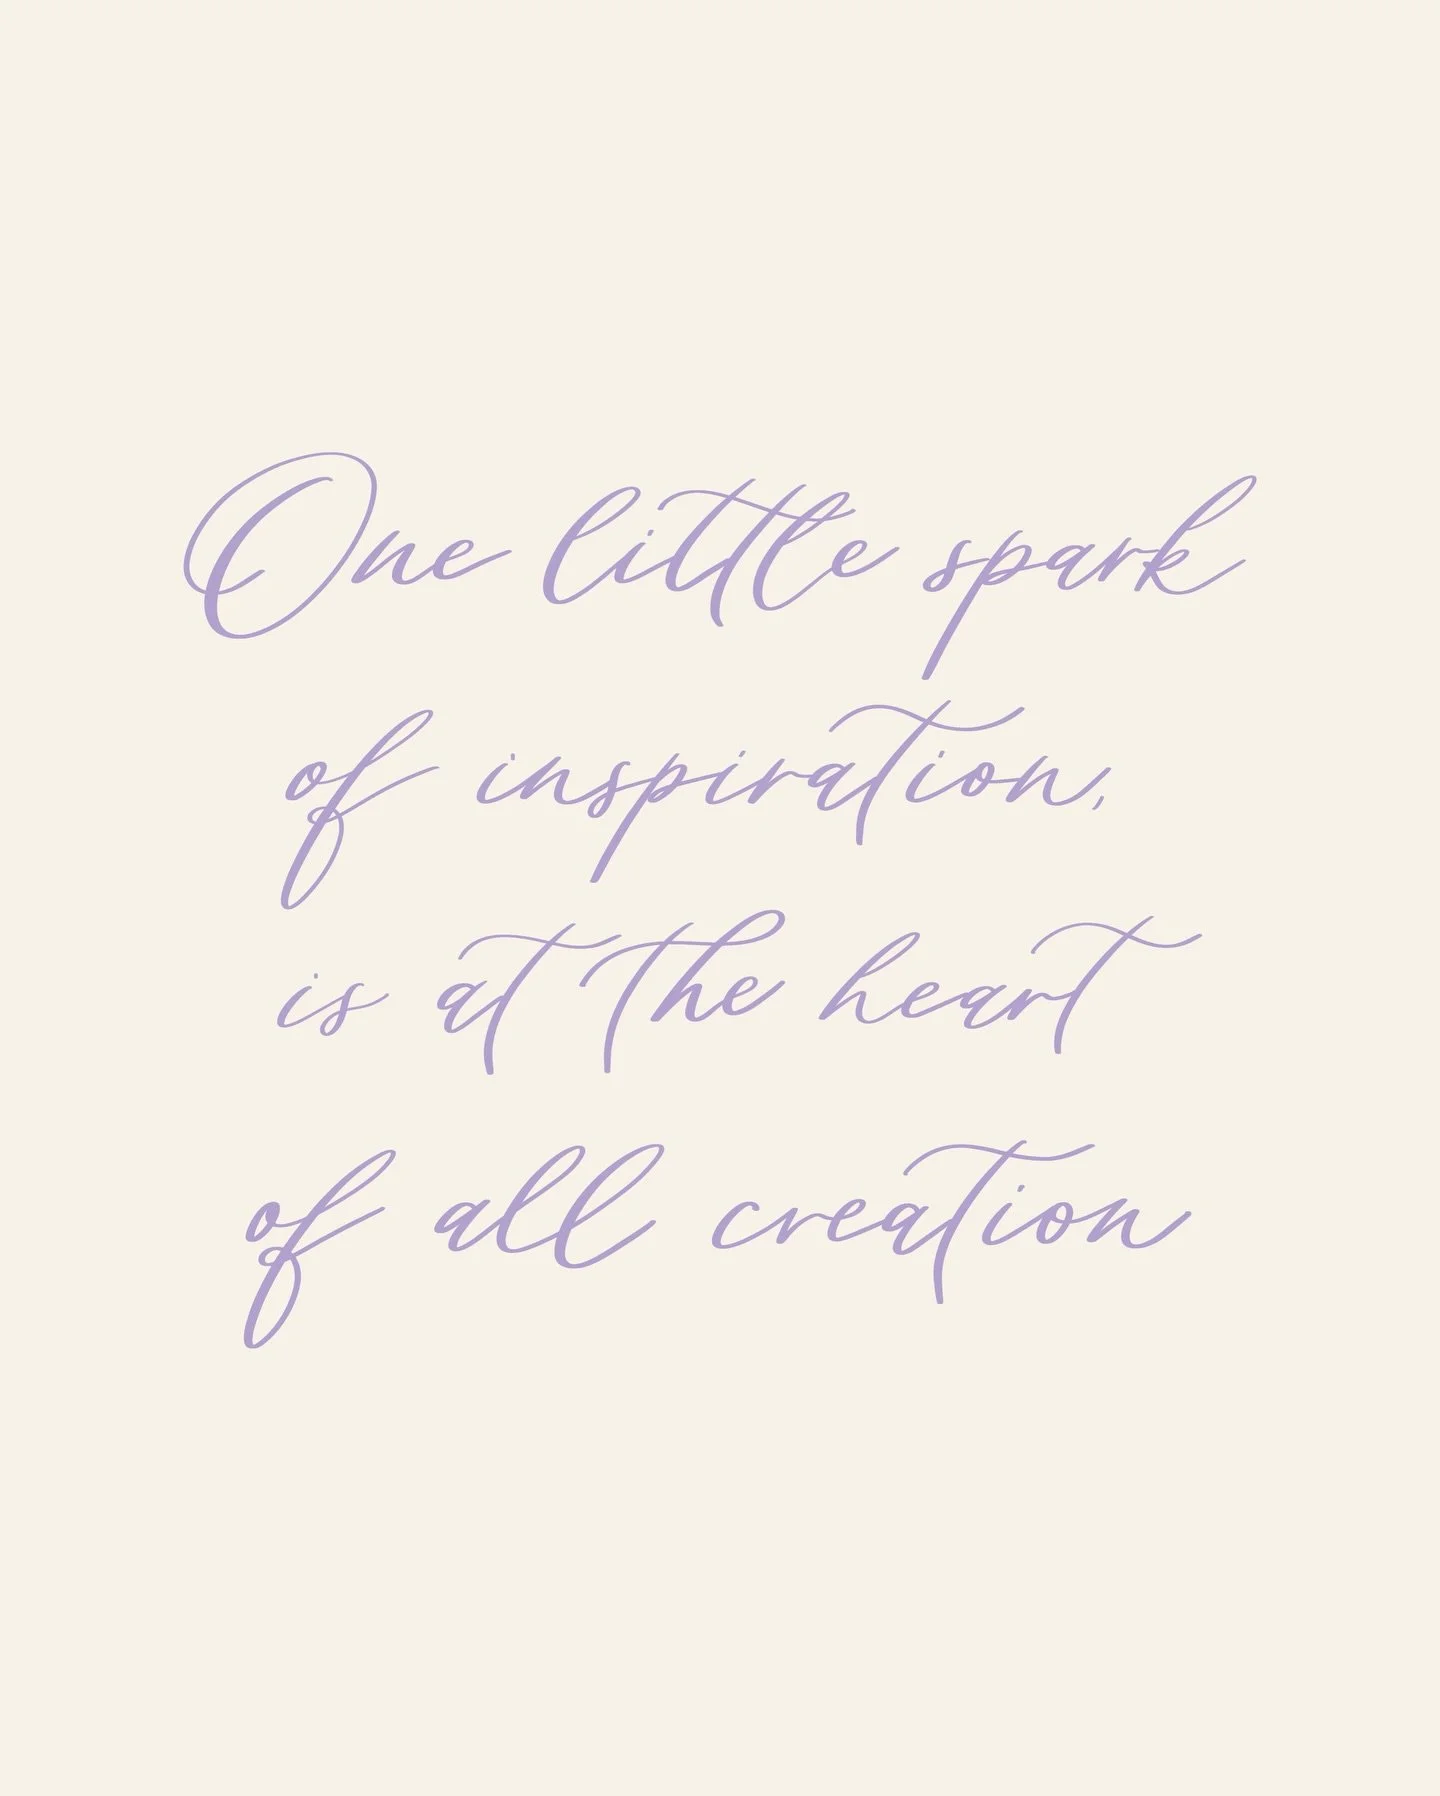 One little spark
of inspiration,
is at the heart
of all creation